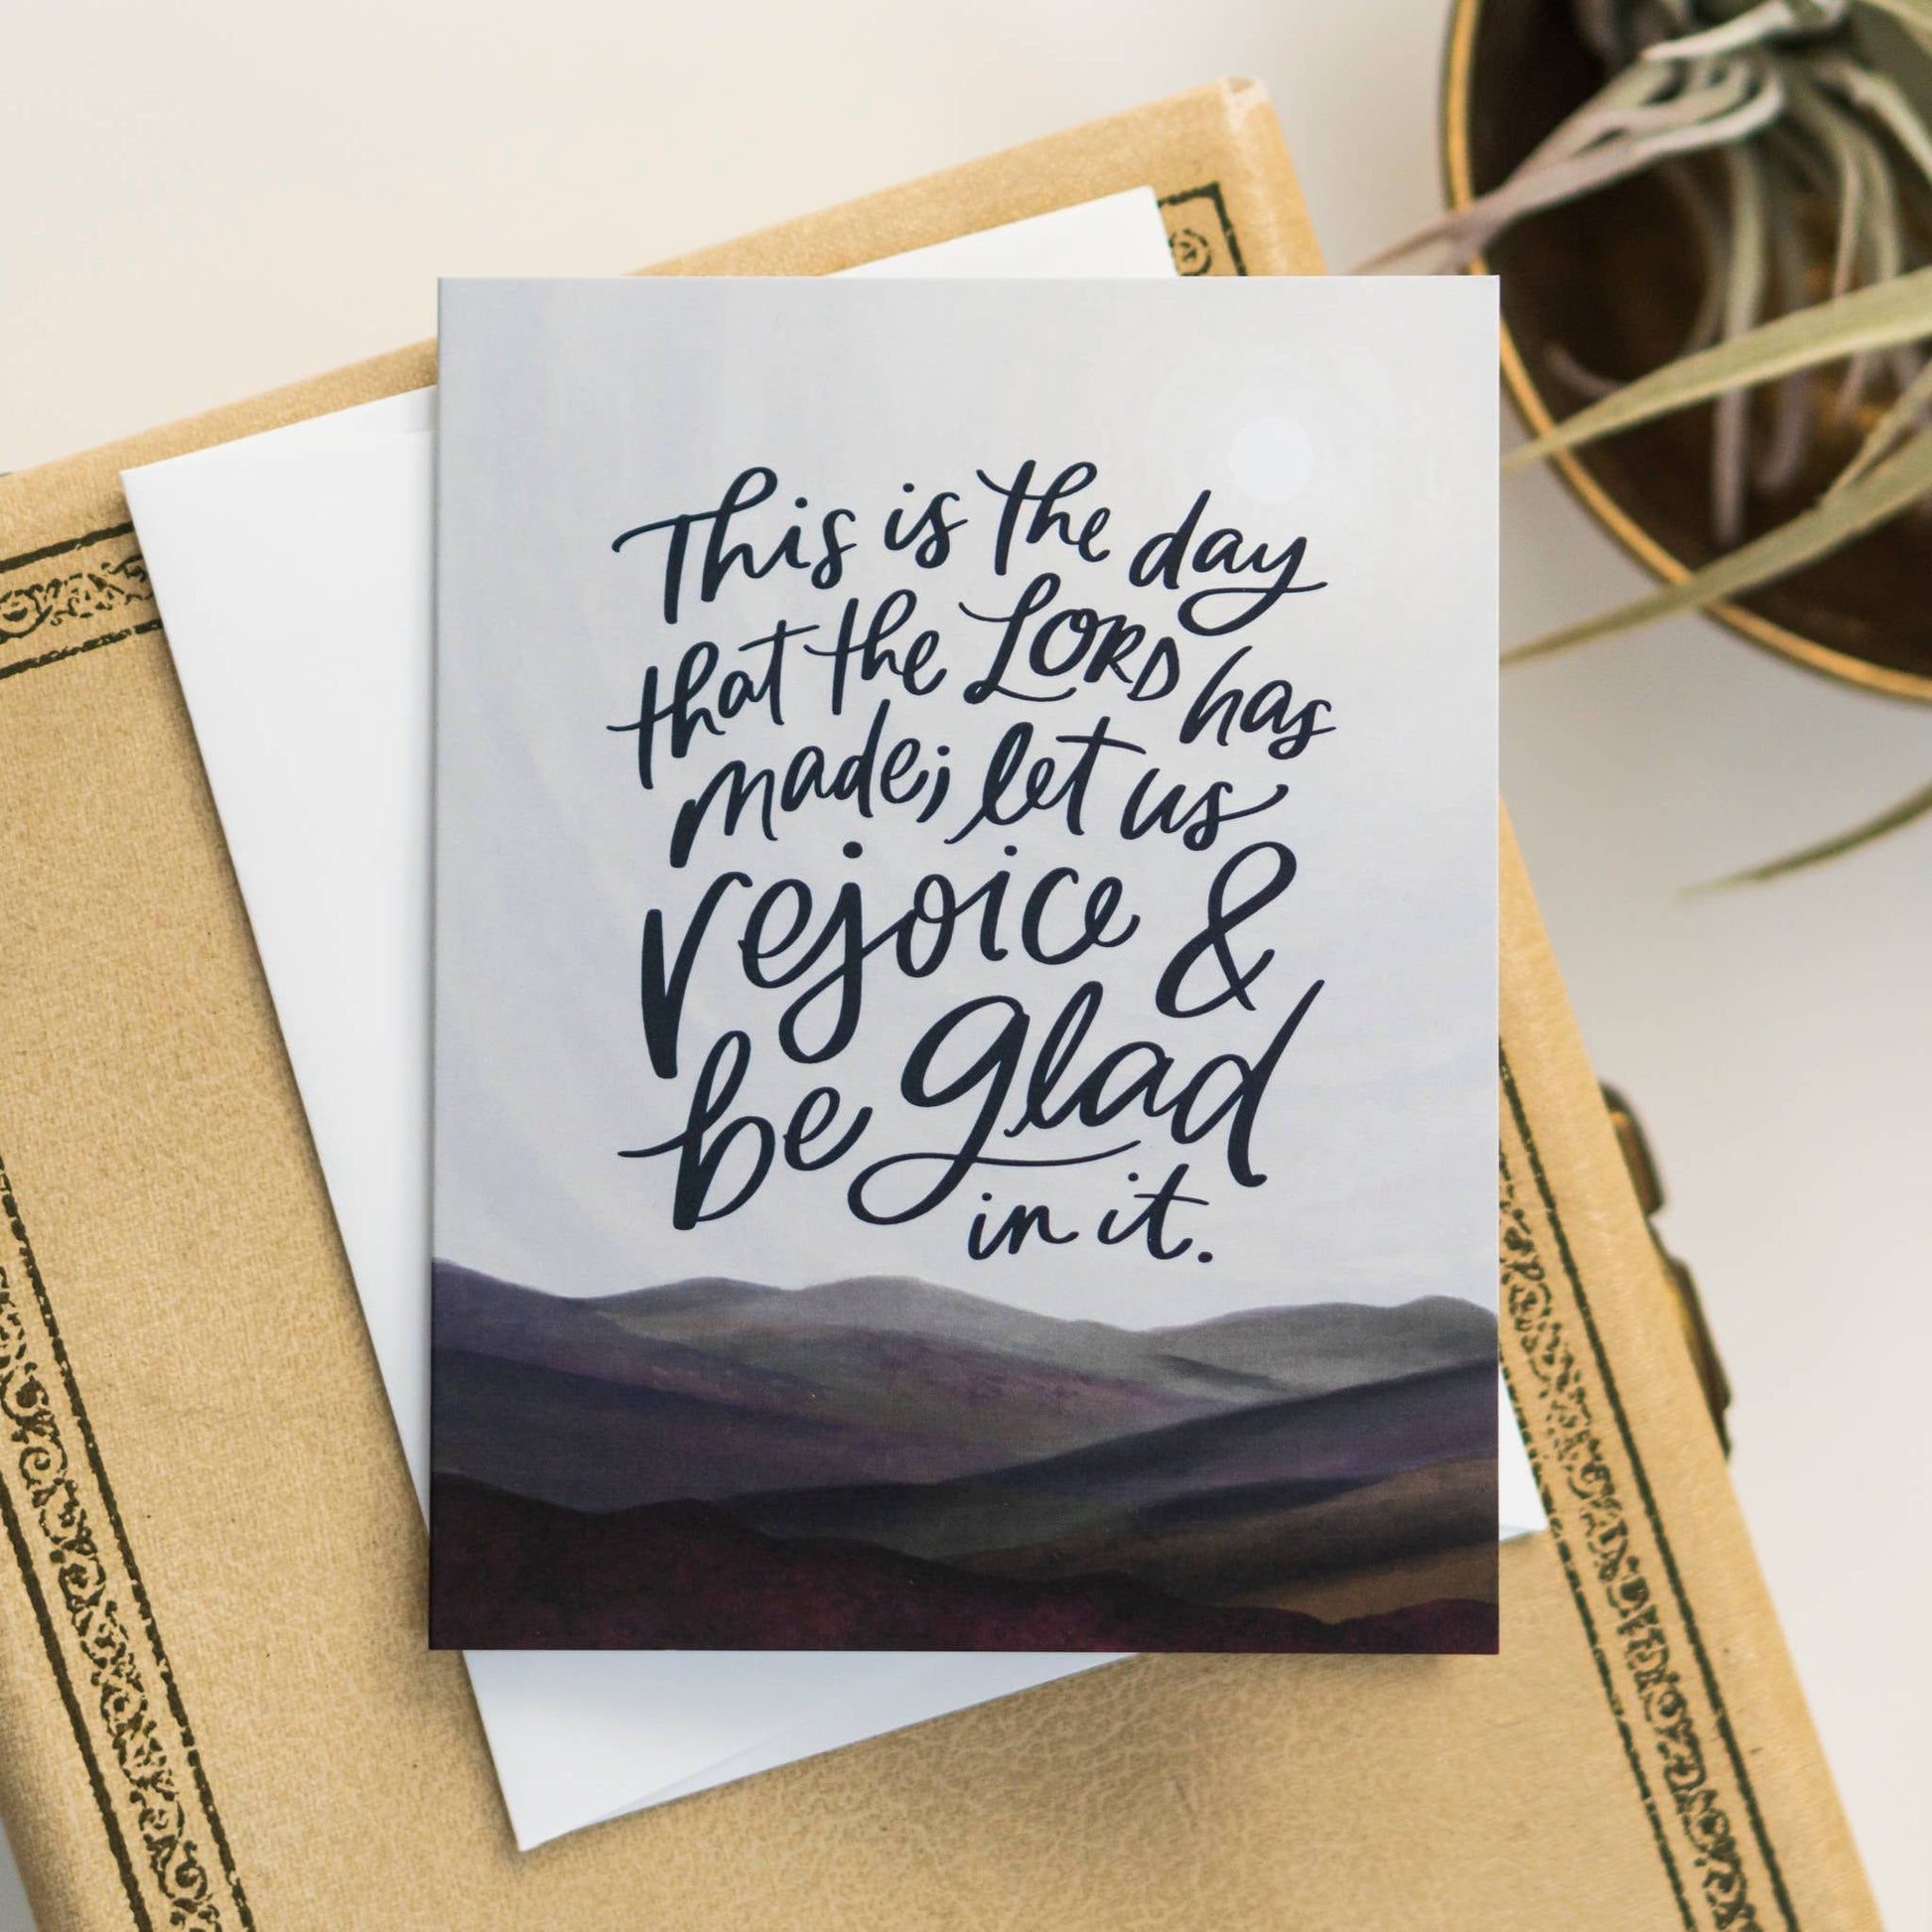 This is the day
that the LORD has
made; let us
rejoice &
be glad
in it.